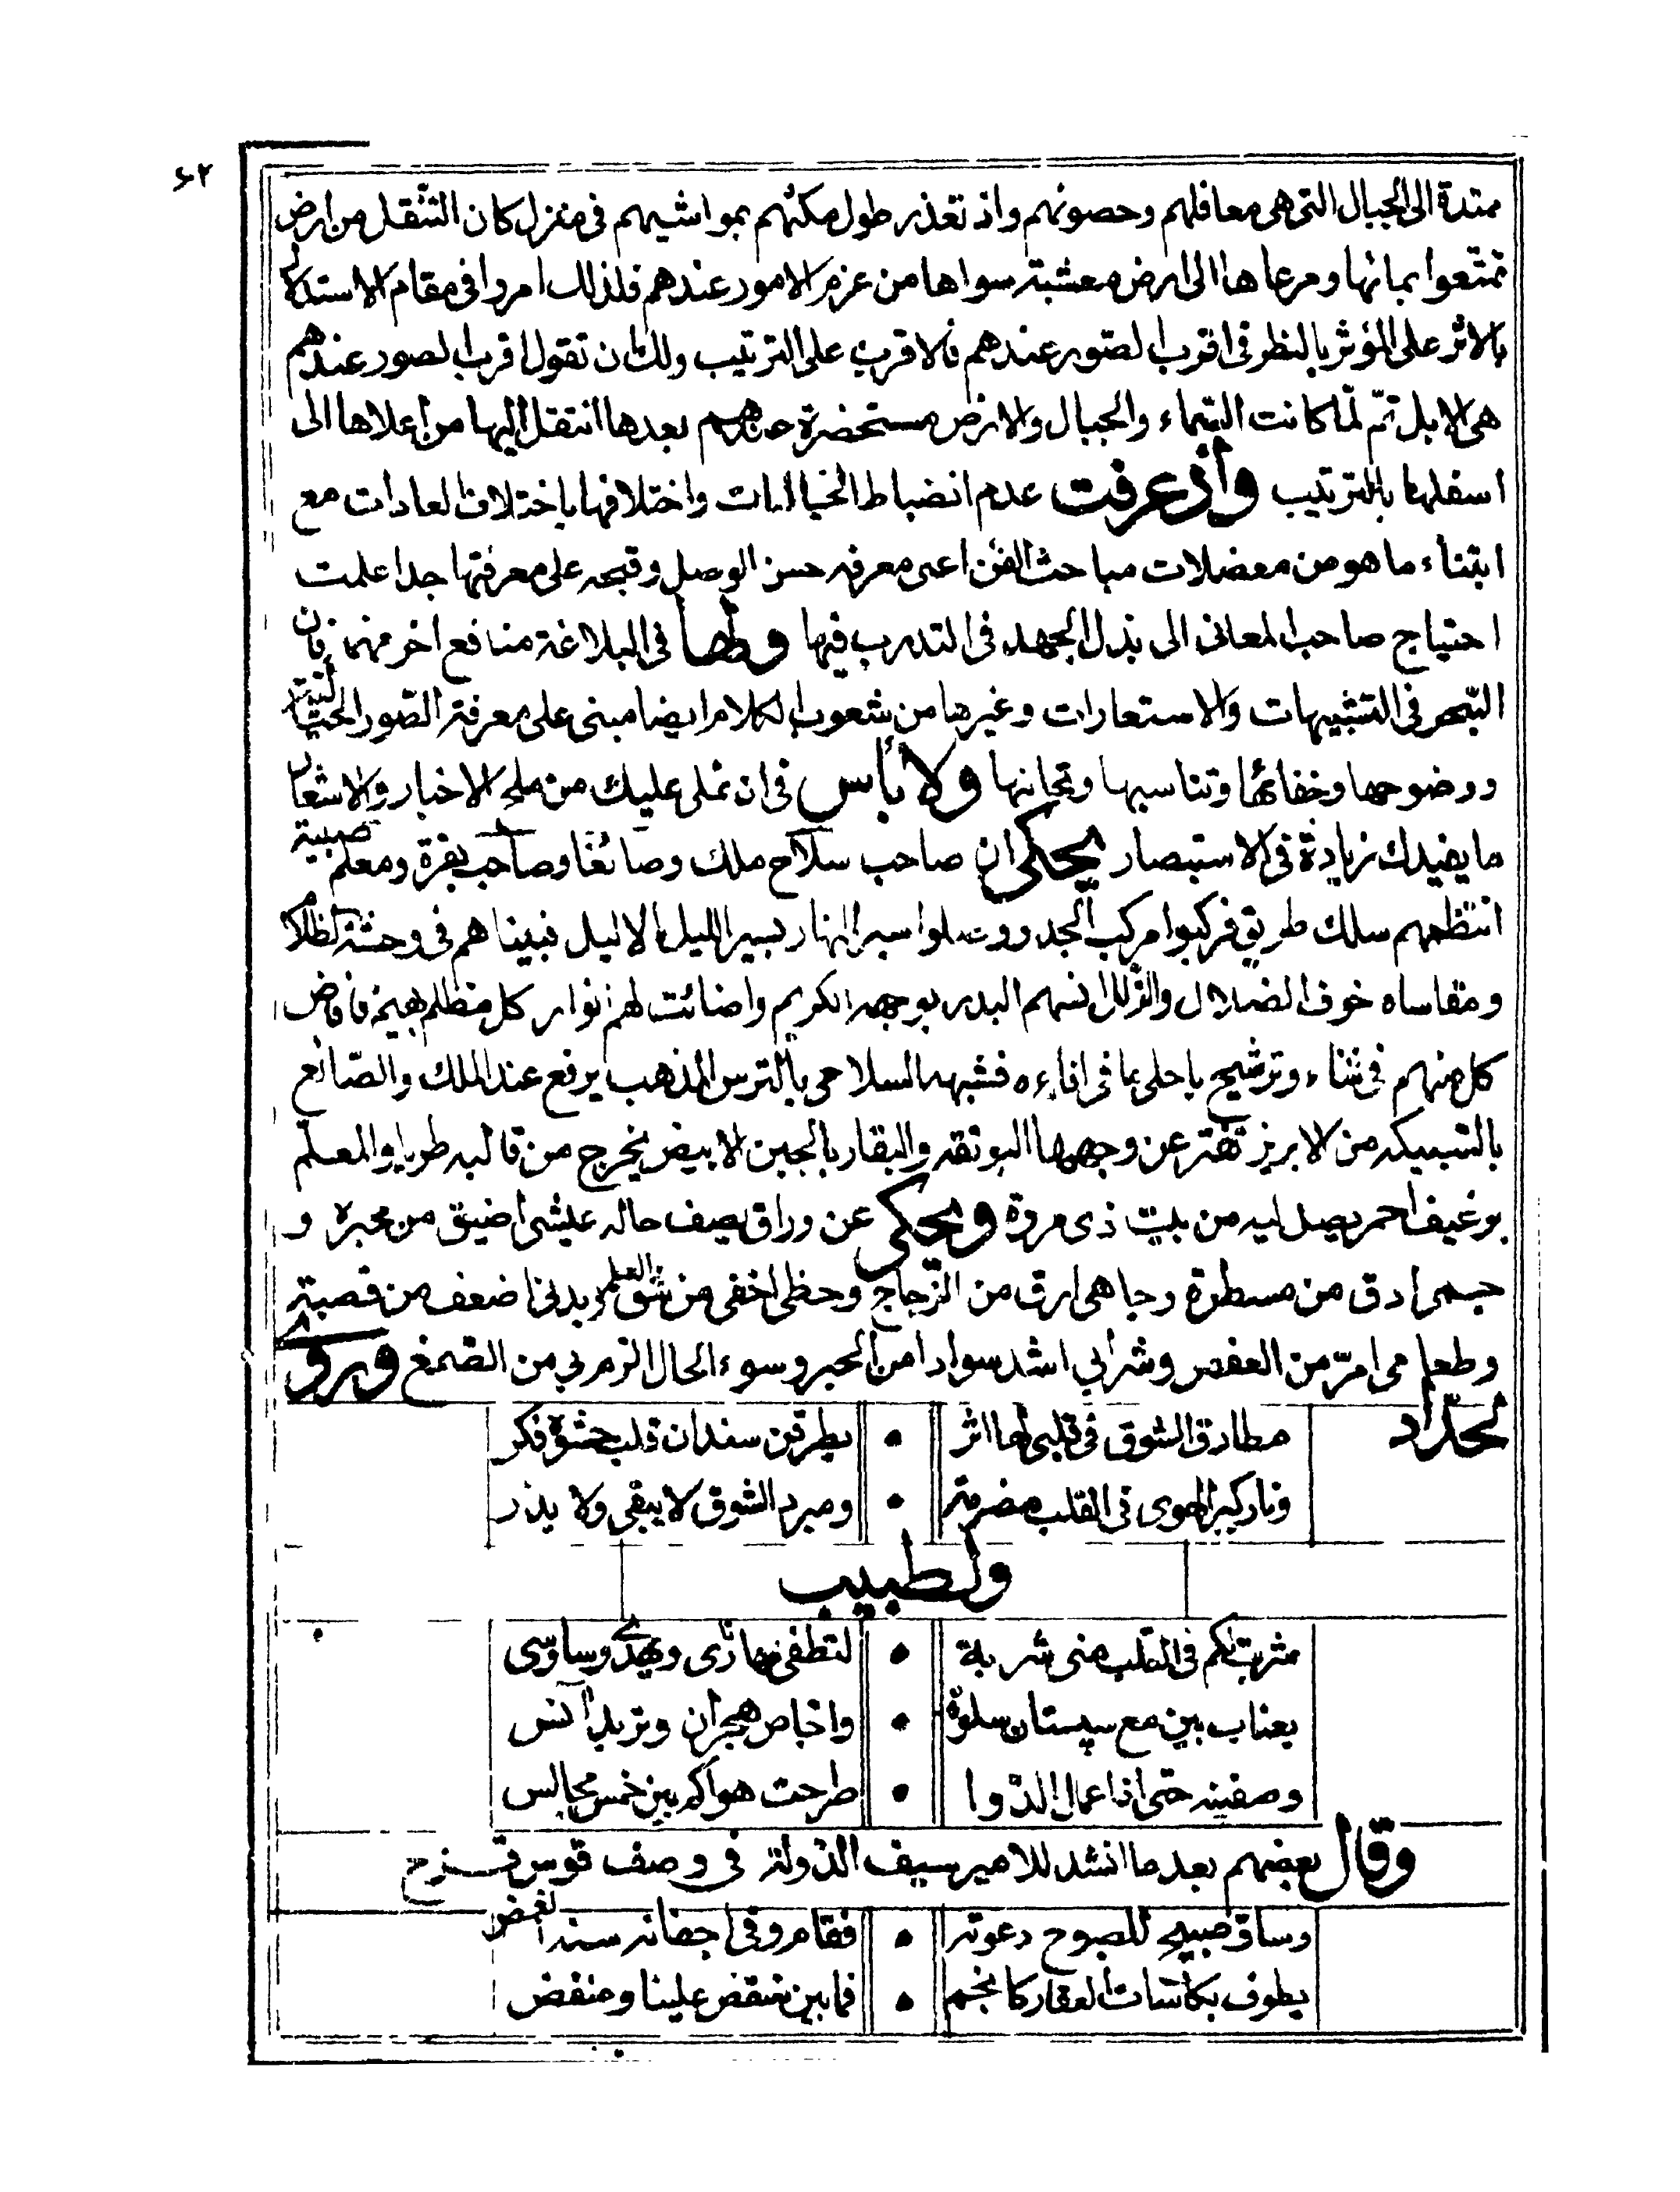 ٦٢
ممتدة الى الجبال التى هى معاقلهم وحصونهم واذ تعذر طول مكثهم بمواشيهم فى منزل كان التنقل من ارض
تمتعوا بمائها ومرعاها الى ارض معشبة سواها من عزم الامور عندهم فلذلك امروا فى مقام الاستدلال
بالاثر على المؤثر بالنظر فى اقرب الصور عندهم فالاقرب على الترتيب ولك ان تقول اقرب الصور عندهم
هى الابل ثمّ لمّا كانت السّماء والجبال والارض مستحضرة عندهم بعدها انتقل اليها من اعلاها الى
اسفلها بالترتيب واذ عرفت عدم انضباط الخياليات واختلافها باختلاف العادات مع
ابتناء ما هو من معضلات مباحث الفن اعنى معرفه حسن الوصل وقبحه على معرفتها جدا علمت
احتياج صاحب المعانى الى بذل الجهد فى التدرب فيها ولها فى البلاغة منافع اخر منها فان
التبحر فى التشبيهات والاستعارات وغيرها من شعوب الكلام ايضا مبنى على معرفة الصور الخيالية
ووضوحها وخفائها وتناسبها وتجانبها ولا بأس فى ان نملى عليك من ملح الاخبار والاشعار
ما يفيدك زيادة فى الاستبصار يحكى ان صاحب سلاح ملك وصائغا وصاحب بقرة ومعلم صبية
انتظمهم سلك طريق فركبوا مركب الجد ووصلوا سير النهار بسير الليل الاليل فبيناهم فى وحشة الظلام
ومقاساه خوف الضلال والزلل انسهم البدر بوجهه الكريم واضائت لهم انوار كل مظلم بهيم فافاض
كل منهم فى ثناء وترشيح باحلى بما فى اناءه فشبهه السلاحى بالترس المذهب يرفع عند الملك والصّائغ
بالسبيكه من الابريز تفتر عن وجهها البوتقه والبقار بالجبن الابيض يخرج من قالبه طريا والمعلم
برغيف احمر يصل اليه من بيت ذى مروة ويحكى عن وراق يصف حاله عيشى اضيق من محبرة و
جسمى ادق من مسطرة وجاهى ارق من الزجاج وحظى اخفى من شق القلم وبدنى اضعف من قصبة
وطعامى امرّ من العفص وشرابى اشد سوادا من الحبر وسوء الحال الزم بى من الصمغ وروى
لحدّاد
مطارق الشوق فى قلبى لها اثر • يطرقن سندان قلب حشوه فكر
ونار كير الهوى فى القلب مضرمة • ومبرد الشوق لا يبقى ولا يذر
ولطبيب
شربت لكم فى القلب منى شربة • لتطفى بها نارى ويهدى وساوسى
بعناب بين مع سپستان سلوة • واجاص هجران وتربد آنس
وصفيته حتى اذا عمل الدّوا • طرحت هواكم بين خمس مجالس
وقال بعضهم بعد ما انشد للامير سيف الدّولة فى وصف قوس قزح
وساق صبيح للصبوح دعوته • فقام وفى اجفانه سنة الغمض
يطوف بكأسات العقار كانجم • فما بين منقض علينا ومنفض